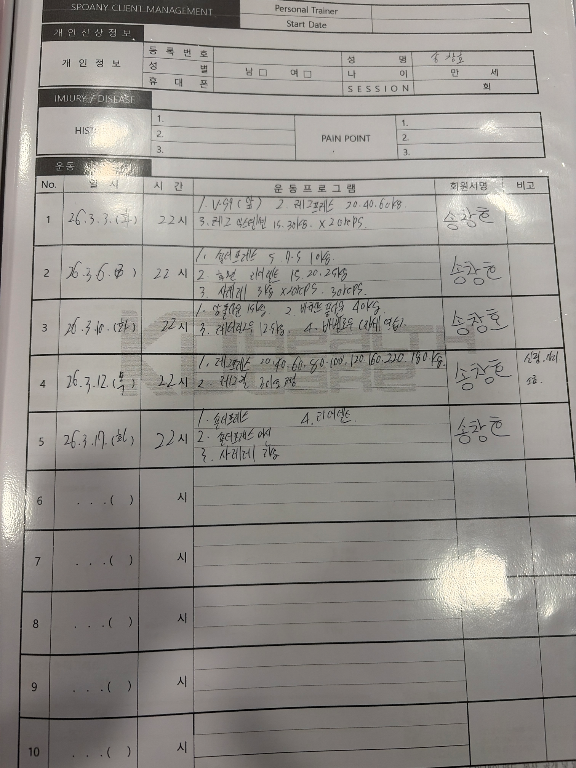 SPOANY CLIENT MANAGEMENT
Personal Trainer
Start Date
개인신상정보
개인정보
등록번호
성별 남□ 여□
휴대폰
성명 송창호
나이 만 세
SESSION 회
IMJURY / DISEASE
HIST
1.
2.
3.
PAIN POINT
1.
2.
3.
운동
No. 일시 시간 운동프로그램 회원서명 비고
1 26.3.3.(화) 22시 송창호
1. V-Sq (맨) 2. 레그프레스 20.40.60kg
3. 레그 익스텐션 15.30kg. x20reps.
2 26.3.6. 22시 송창호
1. 숄더프레스 5 7.5 10kg.
2. 15.20.25kg
3. 사레레 3kg x20reps. 30reps.
3 26.3.10.(화) 22시 송창호
1. 15kg 2. 40kg.
3. 25kg 4. 바벨로우
4 26.3.12.(목) 22시 송창호
1. 레그프레스 20.40.60.80.100.120.160.220 180kg.
2. 레그컬
5 26.3.17.(화) 22시 송창호
1. 숄더프레스 4.
2. 숄더프레스 머신
3. 사레레
6 . . . ( ) 시
7 . . . ( ) 시
8 . . . ( ) 시
9 . . . ( ) 시
10 . . . ( ) 시